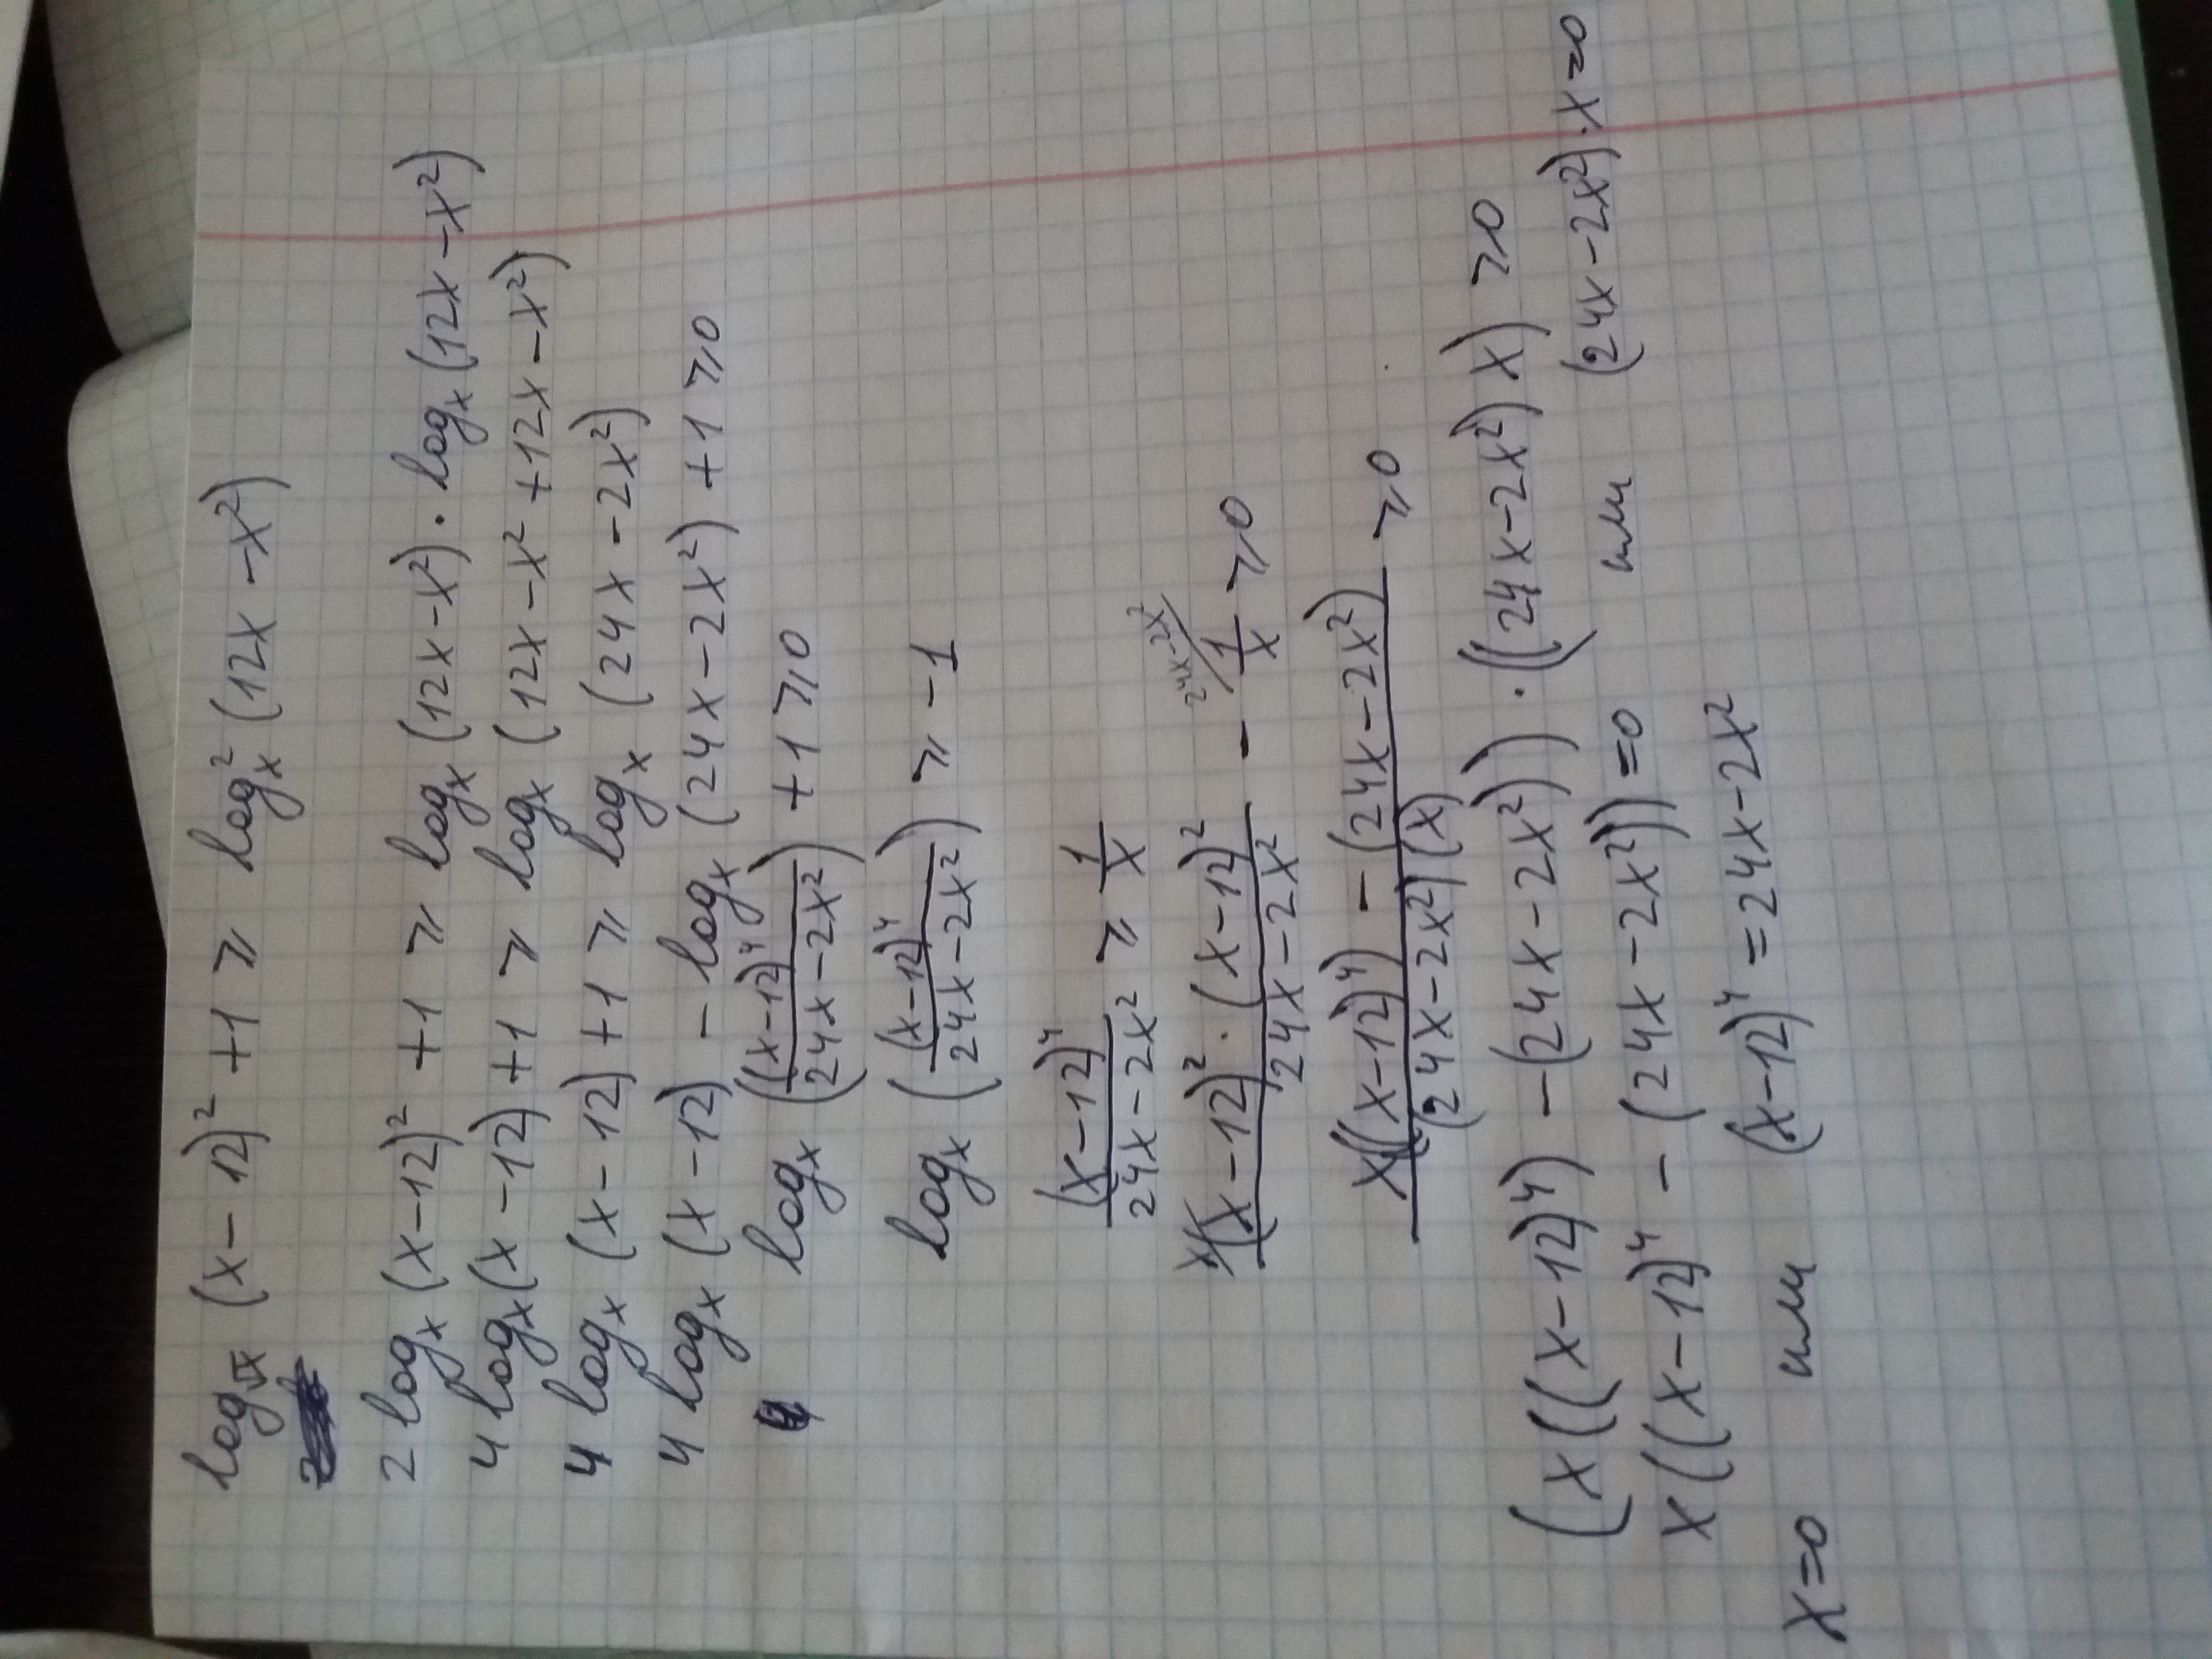 log_√x (x-12)² +1 ⩾ log²_x (12x-x²)
2 log_x (x-12)² +1 ⩾ log_x (12x-x²) · log_x (12x-x²)
4 log_x (x-12) +1 ⩾ log_x (12x-x²+12x-x²)
4 log_x (x-12) +1 ⩾ log_x (24x-2x²)
4 log_x (x-12) - log_x (24x-2x²) +1 ⩾ 0
log_x ((x-12)⁴/(24x-2x²)) +1 ⩾ 0
log_x ((x-12)⁴/(24x-2x²)) ⩾ -1
(x-12)⁴/(24x-2x²) ⩾ 1/x
x/ ((x-12)²·(x-12)²)/(24x-2x²) - 24x-2x²/ 1/x ⩾ 0
(x((x-12)⁴) - (24x-2x²))/((24x-2x²)(x)) ⩾ 0
(x((x-12)⁴) - (24x-2x²))·((24x-2x²)x) ⩾ 0
x((x-12)⁴ - (24x-2x²))=0 или (24x-2x²)·x=0
x=0 или (x-12)⁴=24x-2x²